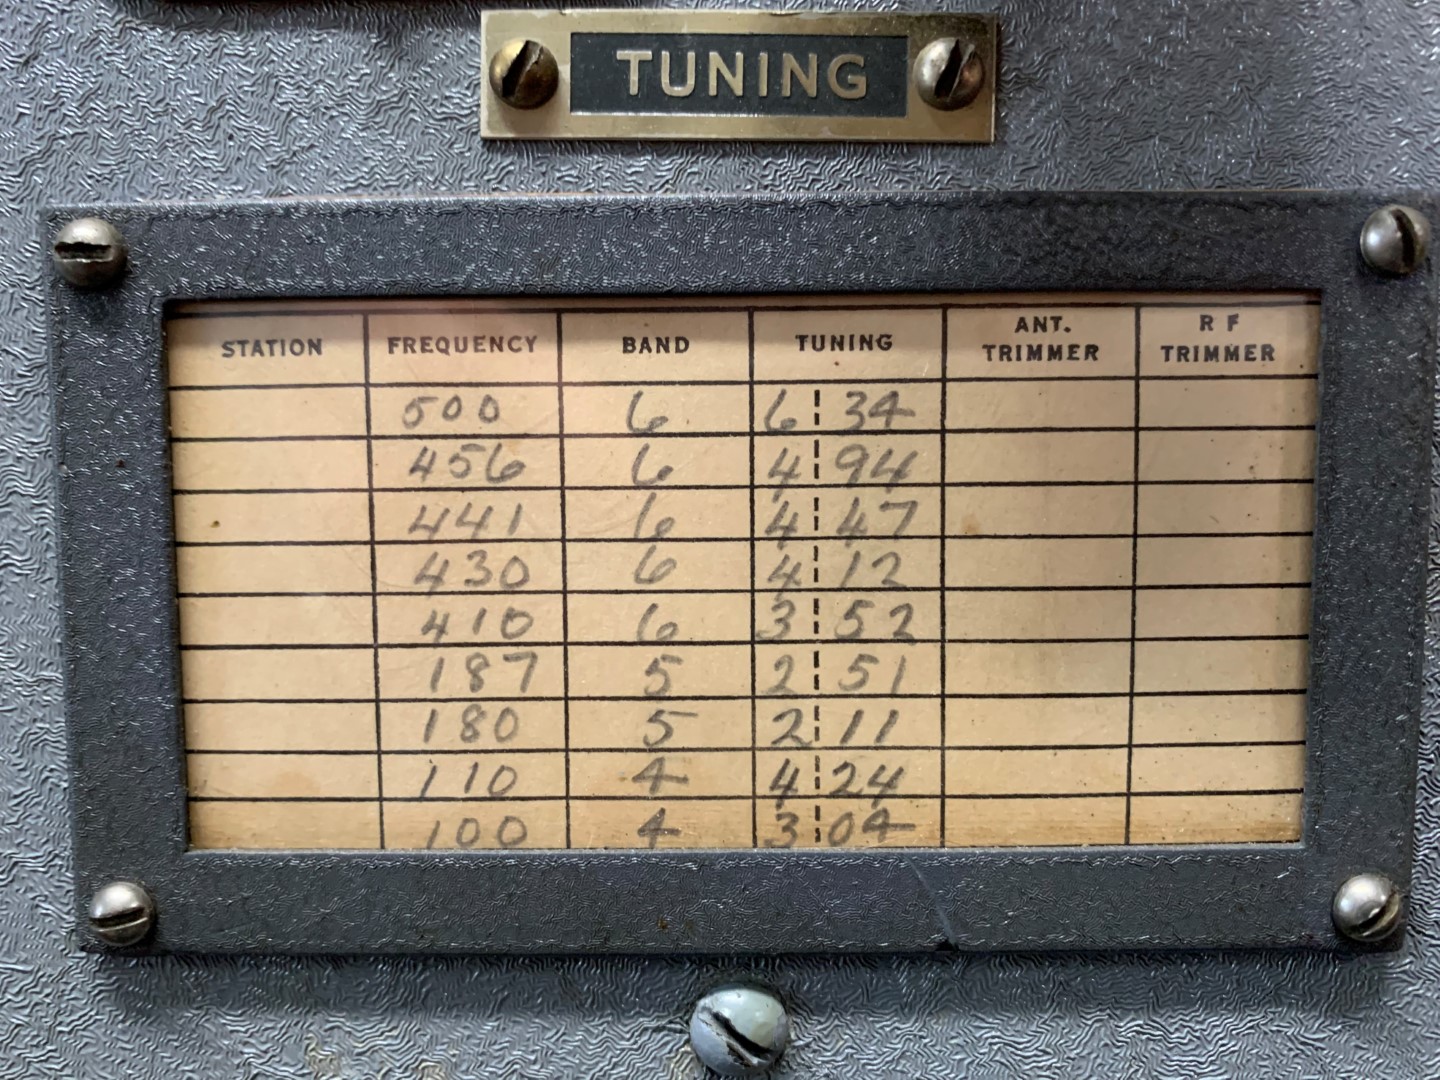 TUNING
STATION FREQUENCY BAND TUNING ANT. TRIMMER R F TRIMMER
500 6 6 34
456 6 4 94
441 6 4 47
430 6 4 12
410 6 3 52
187 5 2 51
180 5 2 11
110 4 4 24
100 4 3 04